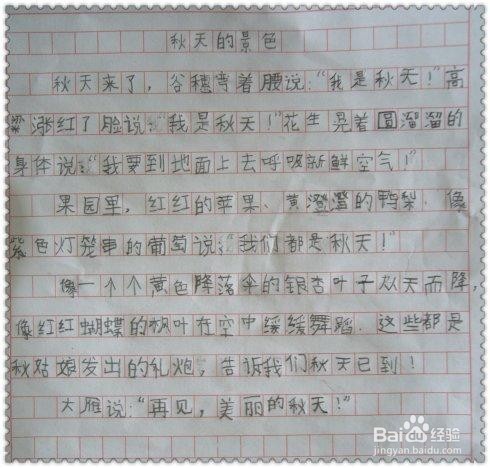 秋天的景色
秋天来了，谷穗弯着腰说："我是秋天！"高
粱涨红了脸说："我是秋天！"花生晃着圆溜溜的
身体说："我要到地面上去呼吸新鲜空气！"
果园里，红红的苹果、黄澄澄的鸭梨、像
紫色灯笼串的葡萄说："我们都是秋天！"
像一个个黄色降落伞的银杏叶子从天而降，
像红红蝴蝶的枫叶在空中缓缓舞蹈。这些都是
秋姑娘发出的礼炮，告诉我们秋天已到！
大雁说："再见，美丽的秋天！"
Baidu经验
jingyan.baidu.com